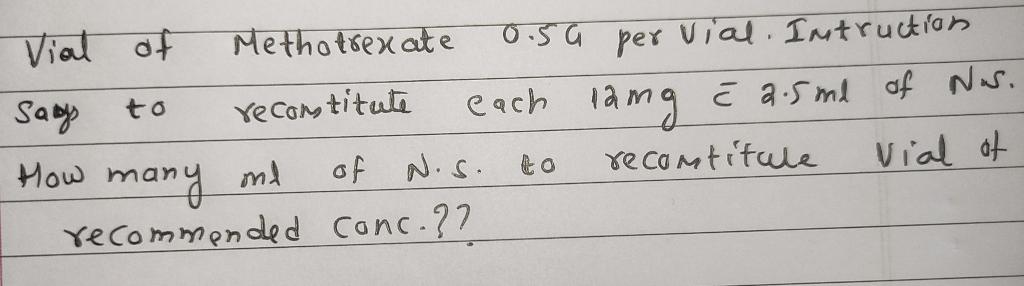 Vial of Methotrexate 0.5G per Vial. Intruction
Says to recontitute each 12mg c̄ 2.5ml of N.S.
How many ml of N.S. to recontitute Vial of
recommended conc.??